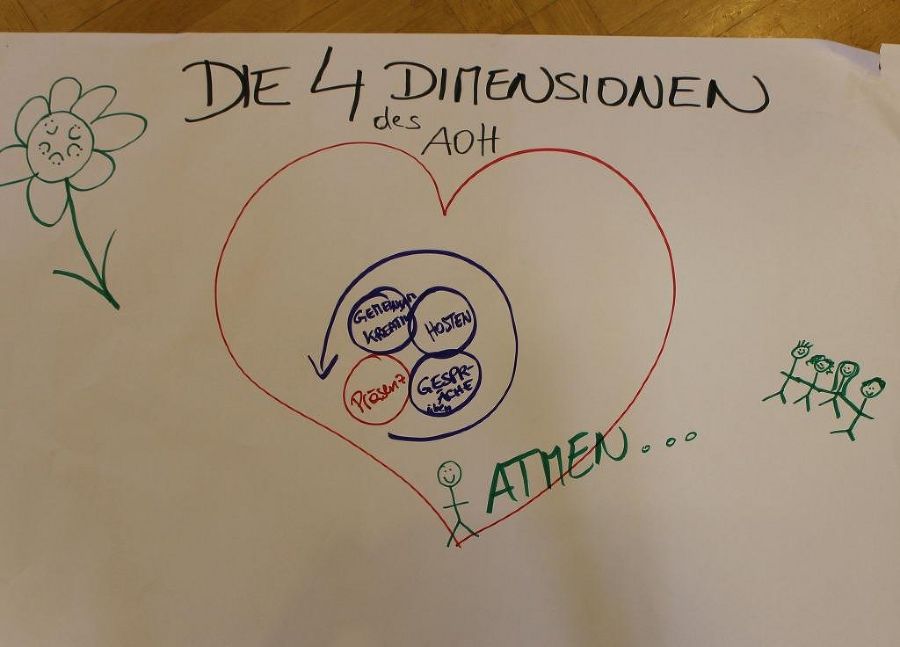 DIE 4 DIMENSIONEN
des
AOH
GEMEINSAM
KREATIV
HOSTEN
Präsenz
GESPR-
ÄCHE
üben
ATMEN...